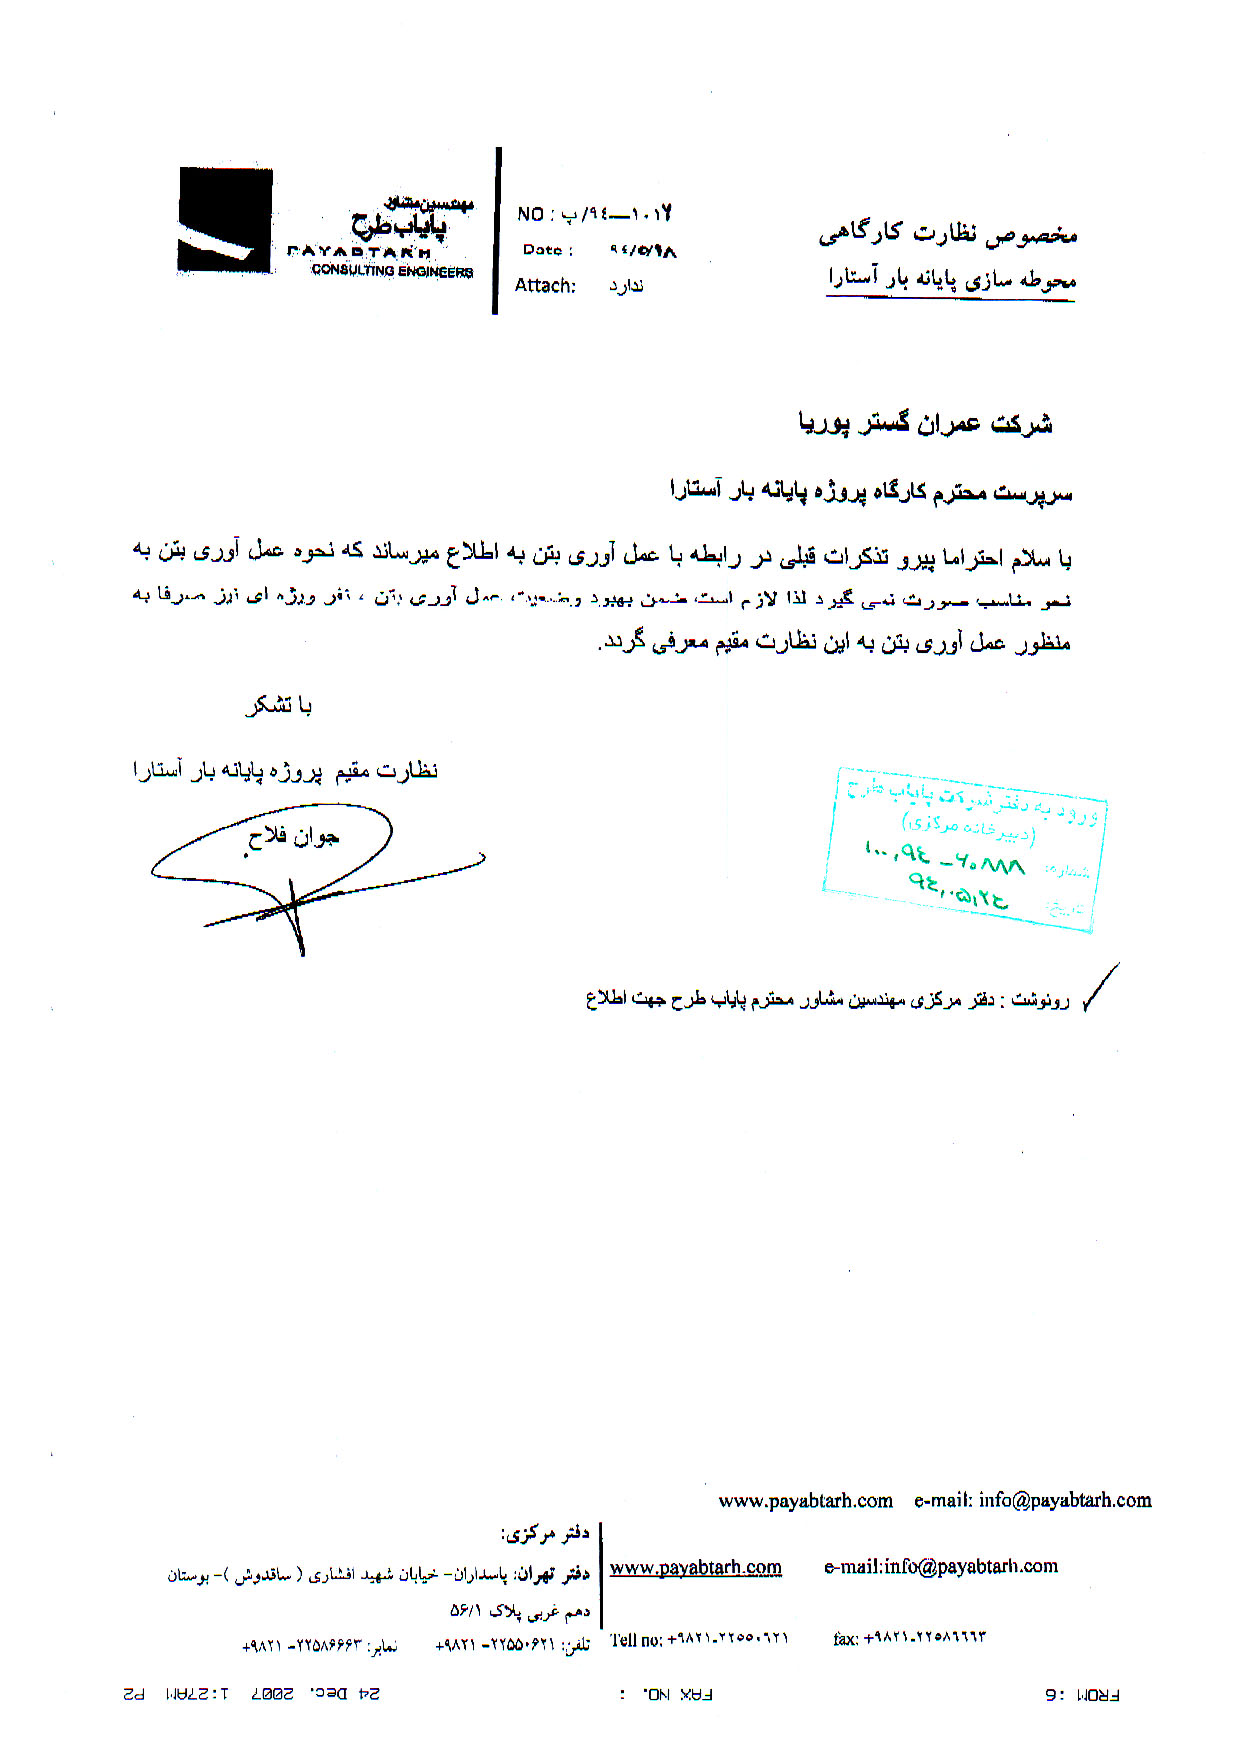 مهندسین مشاور
پایاب طرح
PAYABTARH
CONSULTING ENGINEERS
NO : پ/۹٤—۱۰۱۷
Date : ۹٤/۵/۱۸
Attach: ندارد
مخصوص نظارت کارگاهی
محوطه سازی پایانه بار آستارا
شرکت عمران گستر پوریا
سرپرست محترم کارگاه پروژه پایانه بار آستارا
با سلام احتراما پیرو تذکرات قبلی در رابطه با عمل آوری بتن به اطلاع میرساند که نحوه عمل آوری بتن به
نحو مناسب صورت نمی گیرد لذا لازم است ضمن بهبود وضعیت عمل آوری بتن ، نفر ویژه ای نیز صرفا به
منظور عمل آوری بتن به این نظارت مقیم معرفی گردد.
با تشکر
نظارت مقیم پروژه پایانه بار آستارا
جوان فلاح
ورود به دفتر شرکت پایاب طرح
(دبیرخانه مرکزی)
شماره: ۱۰۰,۹٤ - ۲۰۸۸۸
تاریخ: ۹٤,۰۵,۲٤
رونوشت : دفتر مرکزی مهندسین مشاور محترم پایاب طرح جهت اطلاع
www.payabtarh.com e-mail: info@payabtarh.com
دفتر مرکزی:
دفتر تهران: پاسداران- خیابان شهید افشاری ( ساقدوش )- بوستان
دهم غربی پلاک ۵۶/۱
تلفن: ۲۲۵۵۰۶۲۱- ۹۸۲۱+ نمابر: ۲۲۵۸۶۶۶۳- ۹۸۲۱+
www.payabtarh.com e-mail:info@payabtarh.com
Tell no: +۹۸۲۱-۲۲۵۵۰۶۲۱ fax: +۹۸۲۱-۲۲۵۸۶۶۶۳
FROM :6 FAX NO. : 24 Dec. 2007 1:27AM P2